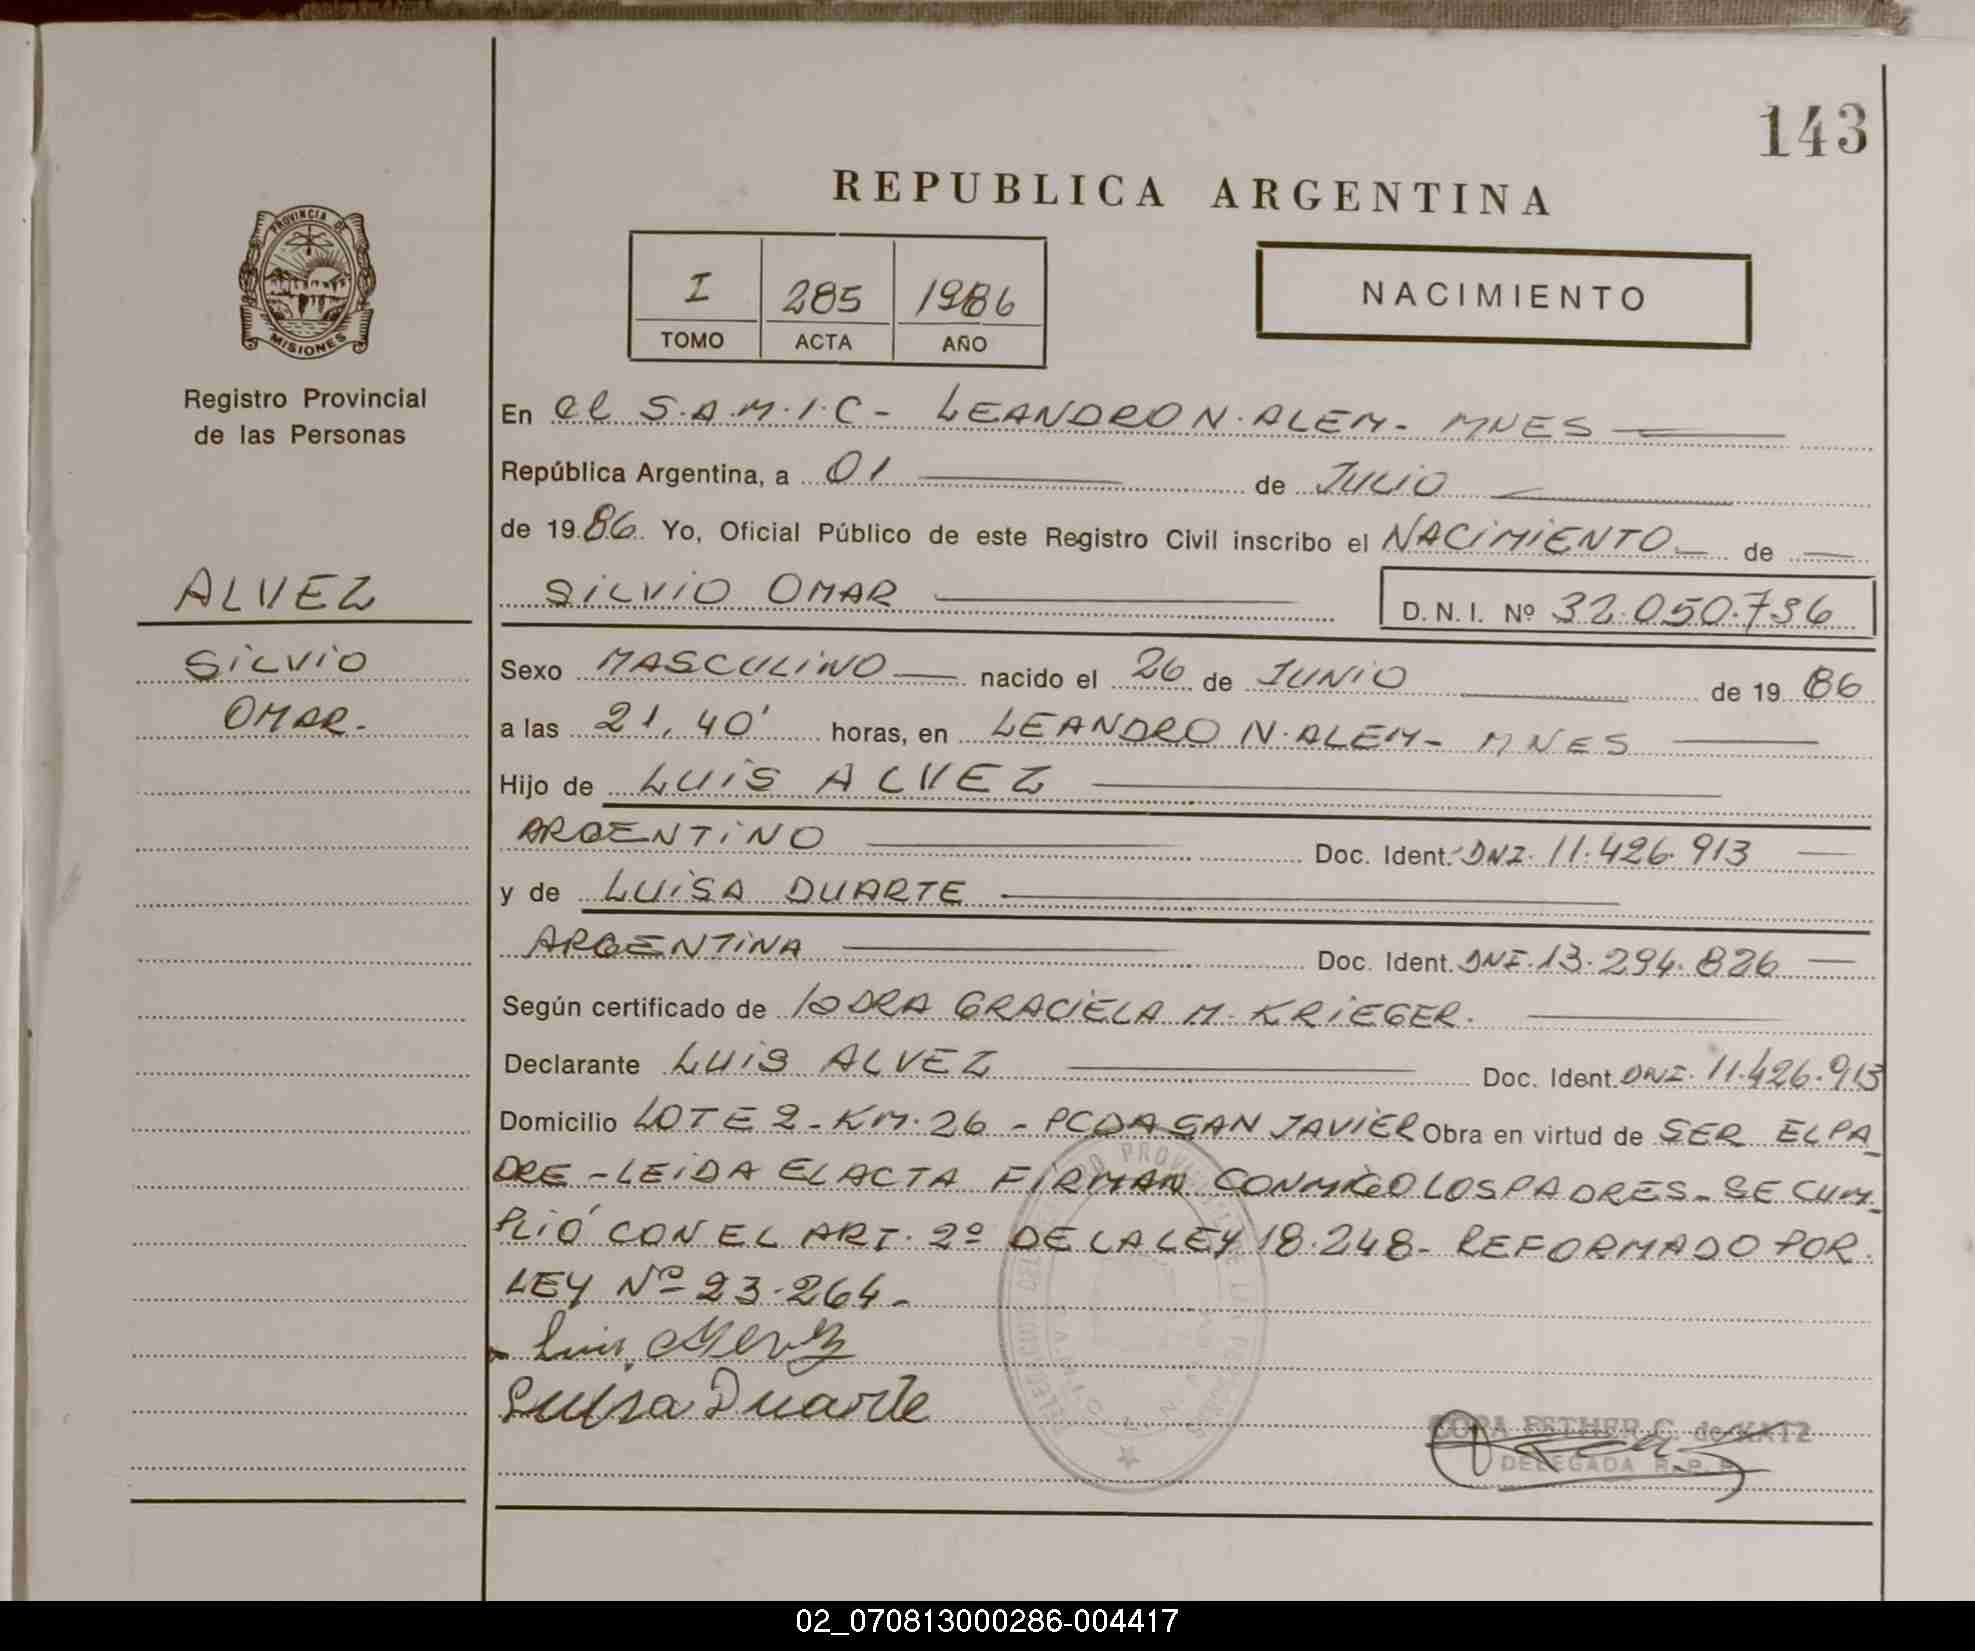 143
REPUBLICA ARGENTINA
PROVINCIA DE
MISIONES
Registro Provincial
de las Personas
I 285 1986
TOMO ACTA AÑO
NACIMIENTO
En el S.A.M.I.C - LEANDRO N. ALEM - MNES
República Argentina, a 01 de JULIO
de 1986 Yo, Oficial Público de este Registro Civil inscribo el NACIMIENTO de
ALVEZ
SILVIO OMAR D.N.I. Nº 32.050.736
SILVIO
OMAR.-
Sexo MASCULINO nacido el 26 de JUNIO de 1986
a las 21,40' horas, en LEANDRO N. ALEM - MNES
Hijo de LUIS ALVEZ
ARGENTINO Doc. Ident. DNI. 11.426.913
y de LUISA DUARTE
ARGENTINA Doc. Ident. DNI. 13.294.826
Según certificado de DRA GRACIELA M. KRIEGER.
Declarante LUIS ALVEZ Doc. Ident. DNI. 11.426.913
Domicilio LOTE 2 - KM. 26 - PCDA SAN JAVIER Obra en virtud de SER EL PA_
DRE - LEIDA EL ACTA FIRMAN CONMIGO LOS PADRES - SE CUM_
PLIÓ CON EL ART. 2º DE LA LEY 18.248 - REFORMADO POR
LEY Nº 23.264 -
Luis Alvez
Luisa Duarte
ESTHER C. de KATZ
DELEGADA R. P. P.
02_070813000286-004417